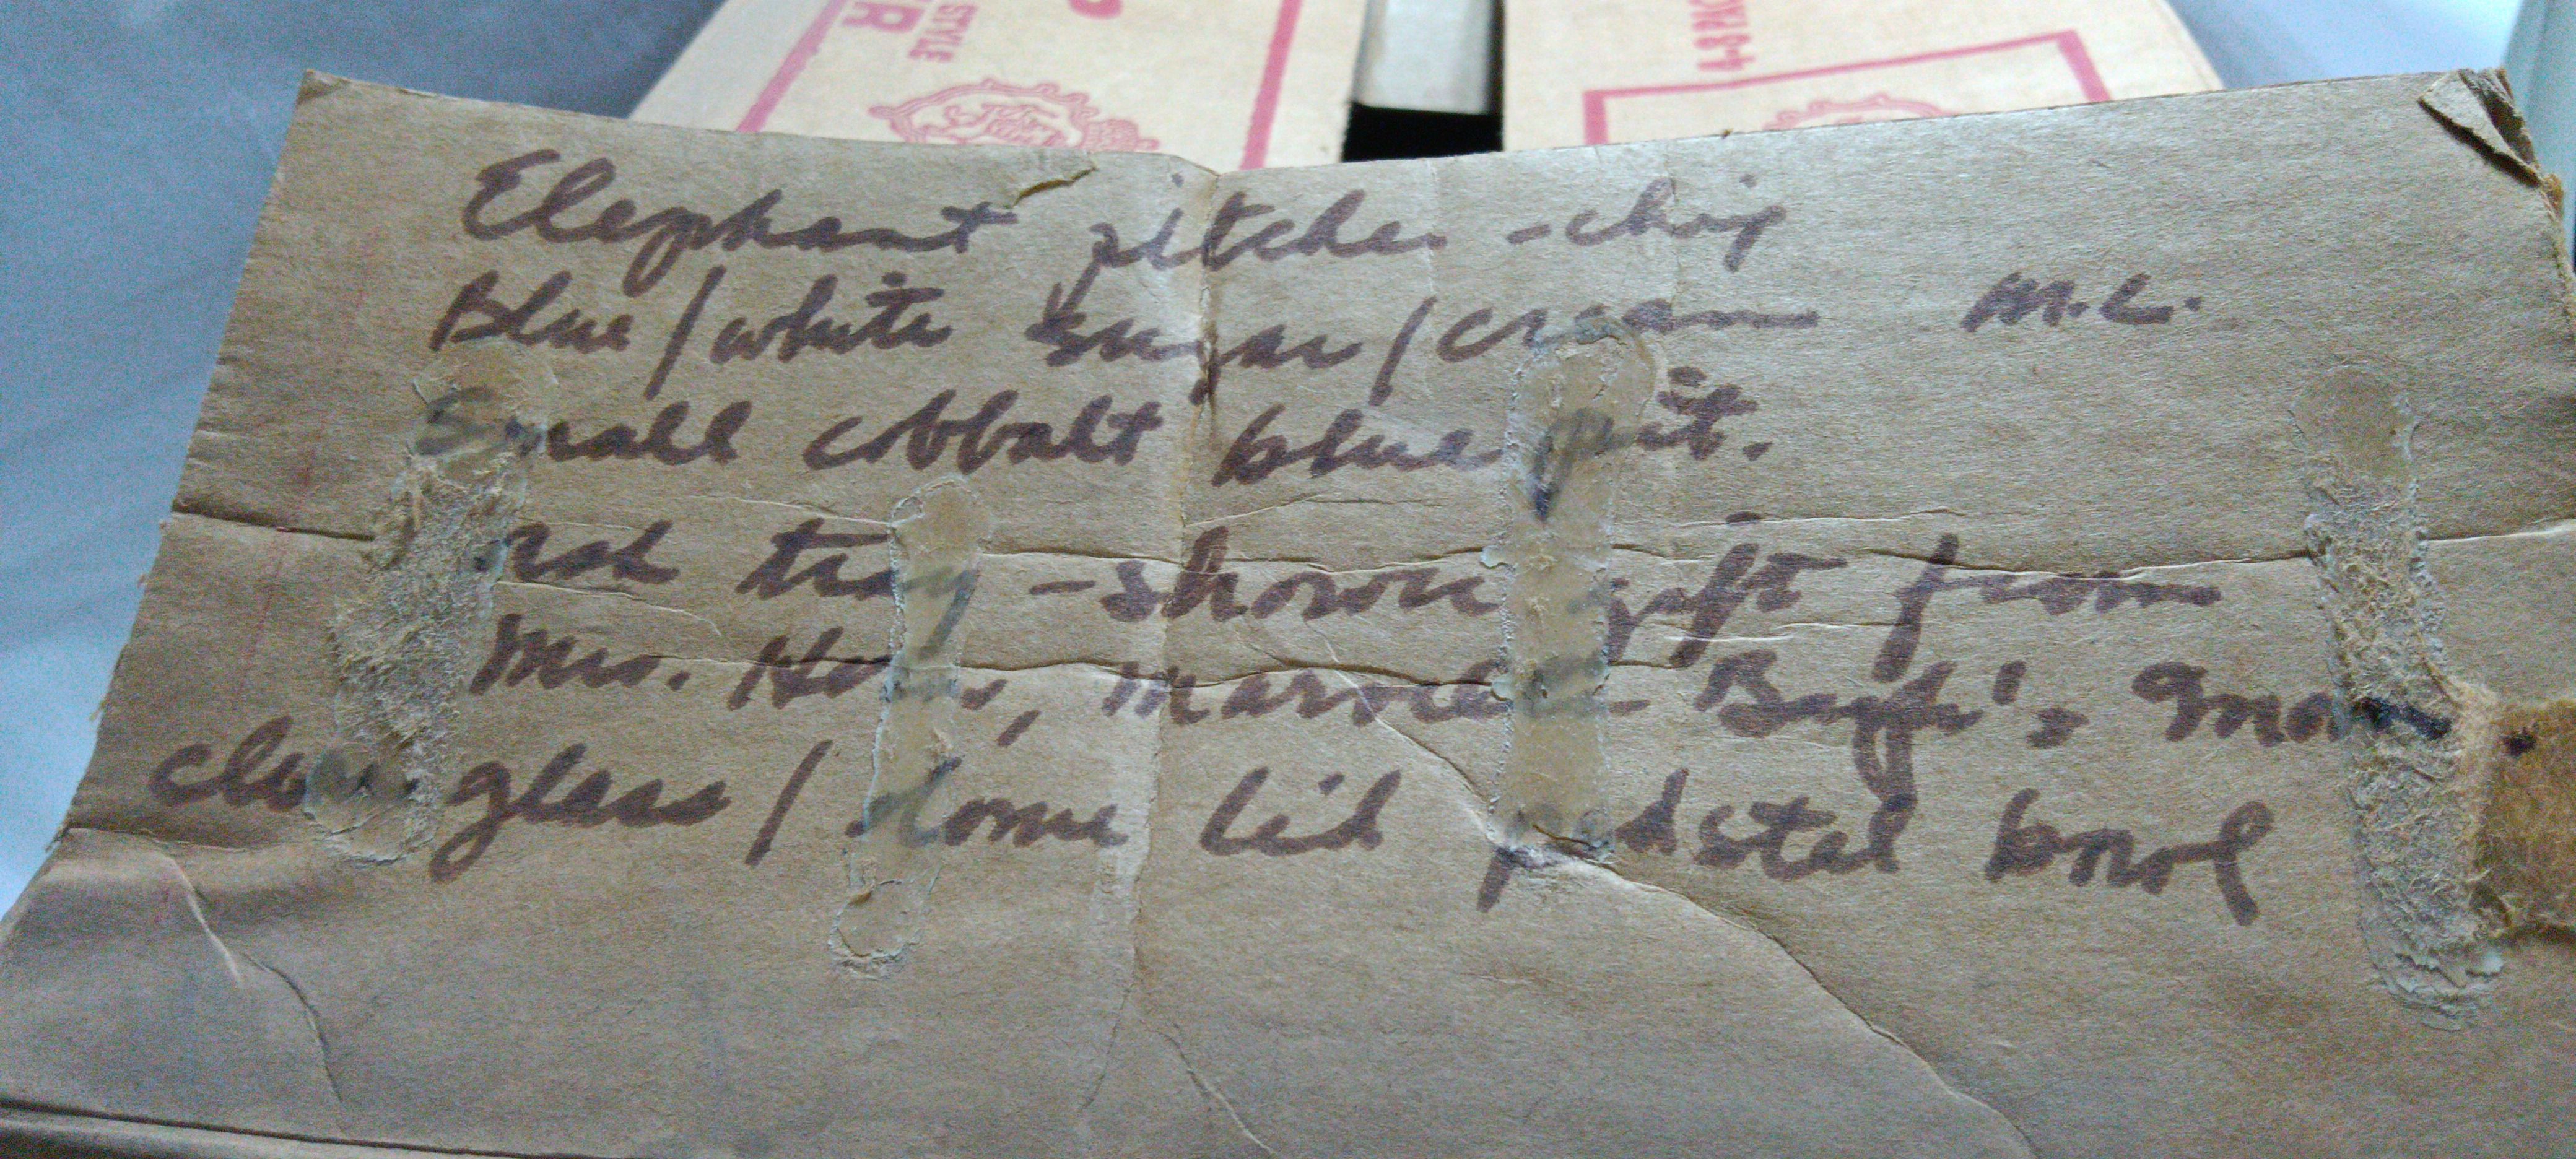 STYLE
4-8 PACK
Elephant pitcher - chip
Blue/white sugar/cream M.L.
Small cobbalt blue pit.
tray - shower gift from
Mrs. Marvelle
clear glass/dome lid pedstal bowl